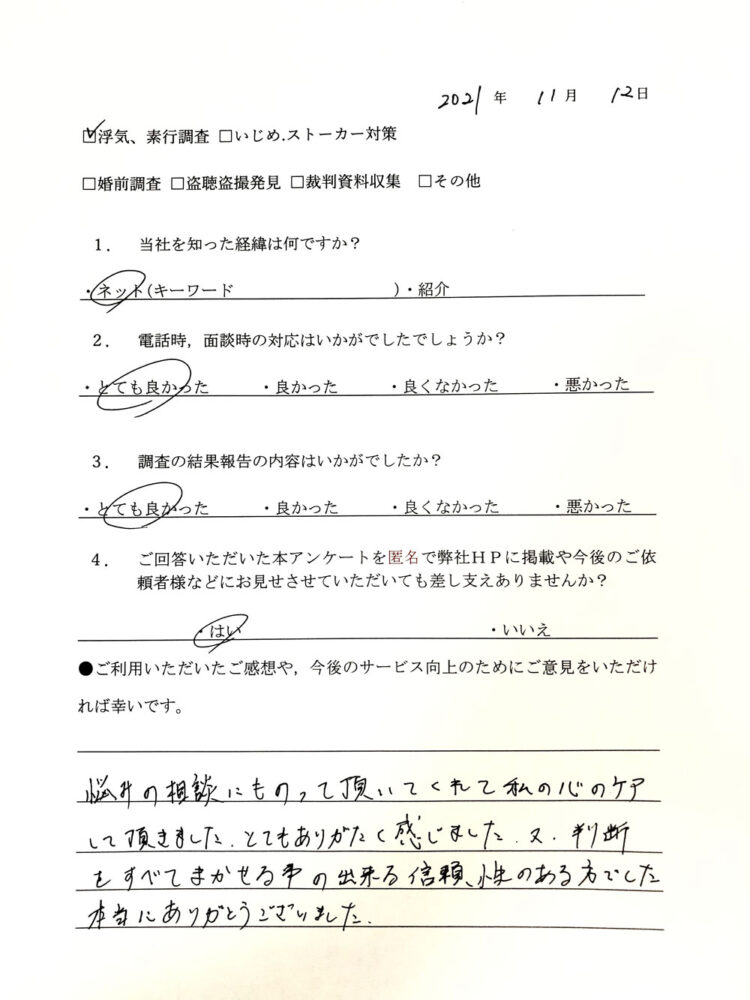 2021年 11月 12日
☑浮気、素行調査 □いじめ.ストーカー対策
□婚前調査 □盗聴盗撮発見 □裁判資料収集 □その他
1. 当社を知った経緯は何ですか？
・ネット(キーワード )・紹介
2. 電話時，面談時の対応はいかがでしたでしょうか？
・とても良かった ・良かった ・良くなかった ・悪かった
3. 調査の結果報告の内容はいかがでしたか？
・とても良かった ・良かった ・良くなかった ・悪かった
4. ご回答いただいた本アンケートを匿名で弊社HPに掲載や今後のご依
頼者様などにお見せさせていただいても差し支えありませんか？
・はい ・いいえ
●ご利用いただいたご感想や，今後のサービス向上のためにご意見をいただけ
れば幸いです。
悩みの相談にものって頂いてくれて私の心のケア
して頂きました。とてもありがたく感じました。又、判断
をすべてまかせる事の出来る信頼、性のある方でした
本当にありがとうございました。